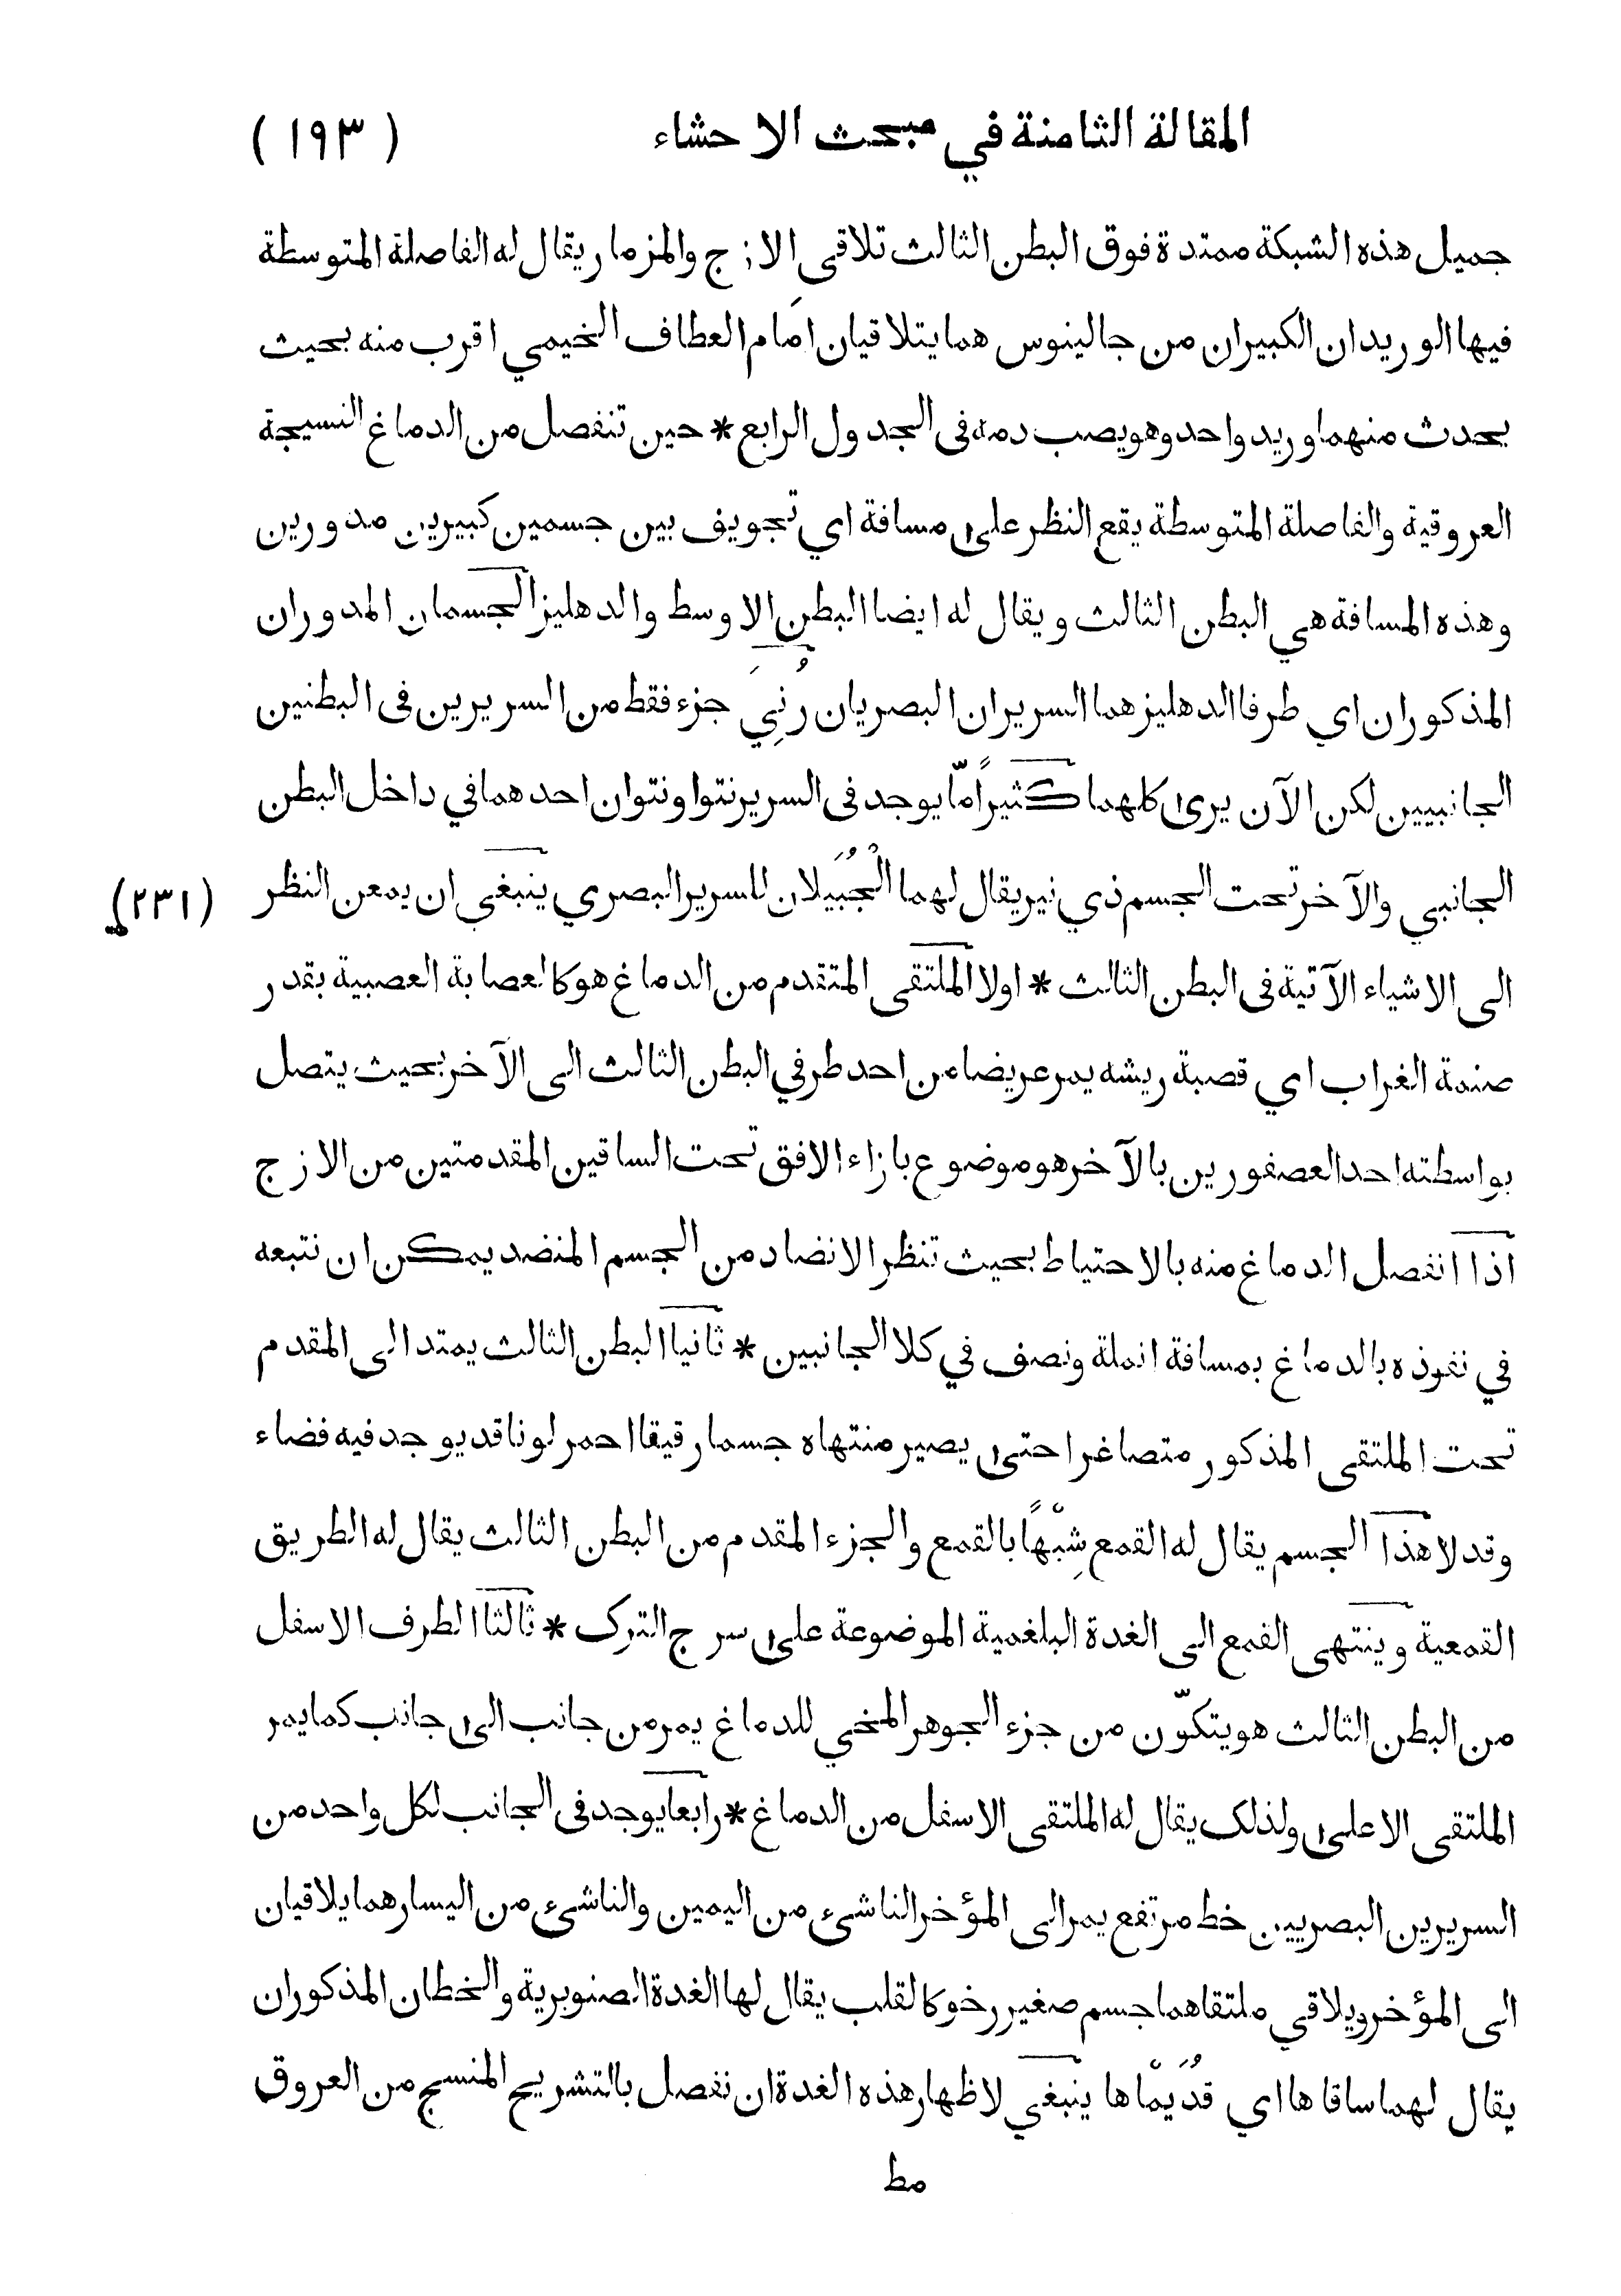 المقالة الثامنة في مبحث الاحشاء (١٩٣)
جميل هذه الشبكة ممتدة فوق البطن الثالث تلاقى الازج والمزمار يقال له الفاصلة المتوسطة
فيها الوريدان الكبيران من جالينوس هما يتلاقيان امَام العطاف الخيمي اقرب منه بحيث
يحدث منهما وريد واحد وهو يصب دمه فى الجدول الرابع * حين تنفصل من الدماغ النسيجة
العروقية والفاصلة المتوسطة يقع النظر على مسافة اي تجويف بين جسمين كبيرين مدورين
وهذه المسافة هي البطن الثالث ويقال له ايضا البطن الاوسط والدهليز الجسمان المدوران
المذكوران اي طرفا الدهليز هما السريران البصريان رُنِيَ جزء فقط من السريرين فى البطنين
الجانبيين لكن الآن يرى كلهما كثيراً مّا يوجد فى السرير نتوا ونتوان احدهما في داخل البطن
الجانبي والآخر تحت الجسم ذي نير يقال لهما الْجُبَيلان للسرير البصري ينبغي ان يمعن النظر
(٢٣١)
الى الاشياء الآتية فى البطن الثالث * اولا الملتقى المتقدم من الدماغ هو كالعصابة العصبية بقدر
صنمة الغراب اي قصبة ريشه يمر عريضا من احد طرفي البطن الثالث الى الآخر بحيث يتصل
بواسطته احد العصفورين بالآخر هو موضوع بازاء الافق تحت الساقين المقدمتين من الازج
اذا انفصل الدماغ منه بالاحتياط بحيث تنظر الانضاد من الجسم المنضد يمكن ان نتبعه
في نفوذه بالدماغ بمسافة انملة ونصف في كلا الجانبين * ثانيا البطن الثالث يمتد الى المقدم
تحت الملتقى المذكور متصاغرا حتى يصير منتهاه جسما رقيقا احمر لونا قد يوجد فيه فضاء
وقد لا هذا الجسم يقال له القمع شِبْهًا بالقمع والجزء المقدم من البطن الثالث يقال له الطريق
القمعية وينتهى القمع الى الغدة البلغمية الموضوعة على سرج الترك * ثالثا الطرف الاسفل
من البطن الثالث هو يتكوّن من جزء الجوهر المخي للدماغ يمر من جانب الى جانب كما يمر
الملتقى الاعلى ولذلك يقال له الملتقى الاسفل من الدماغ * رابعا يوجد فى الجانب لكل واحد من
السريرين البصريين خط مرتفع يمر الى المؤخر الناشئ من اليمين والناشئ من اليسار هما يلاقيان
الى المؤخر ويلاقي ملتقاهما جسم صغير رخو كالقلب يقال لها الغدة الصنوبرية والخطان المذكوران
يقال لهما ساقاها اي قُدَيمْاها ينبغي لاظهار هذه الغدة ان نفصل بالتشريح المنسج من العروق
مط